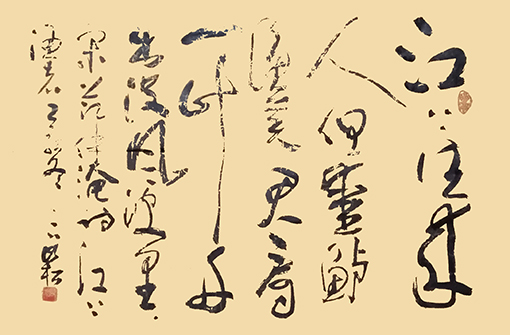 江上往来
人但愛鲈
魚美君看
一叶舟
出没风波里
宋范仲淹诗江上
渔者